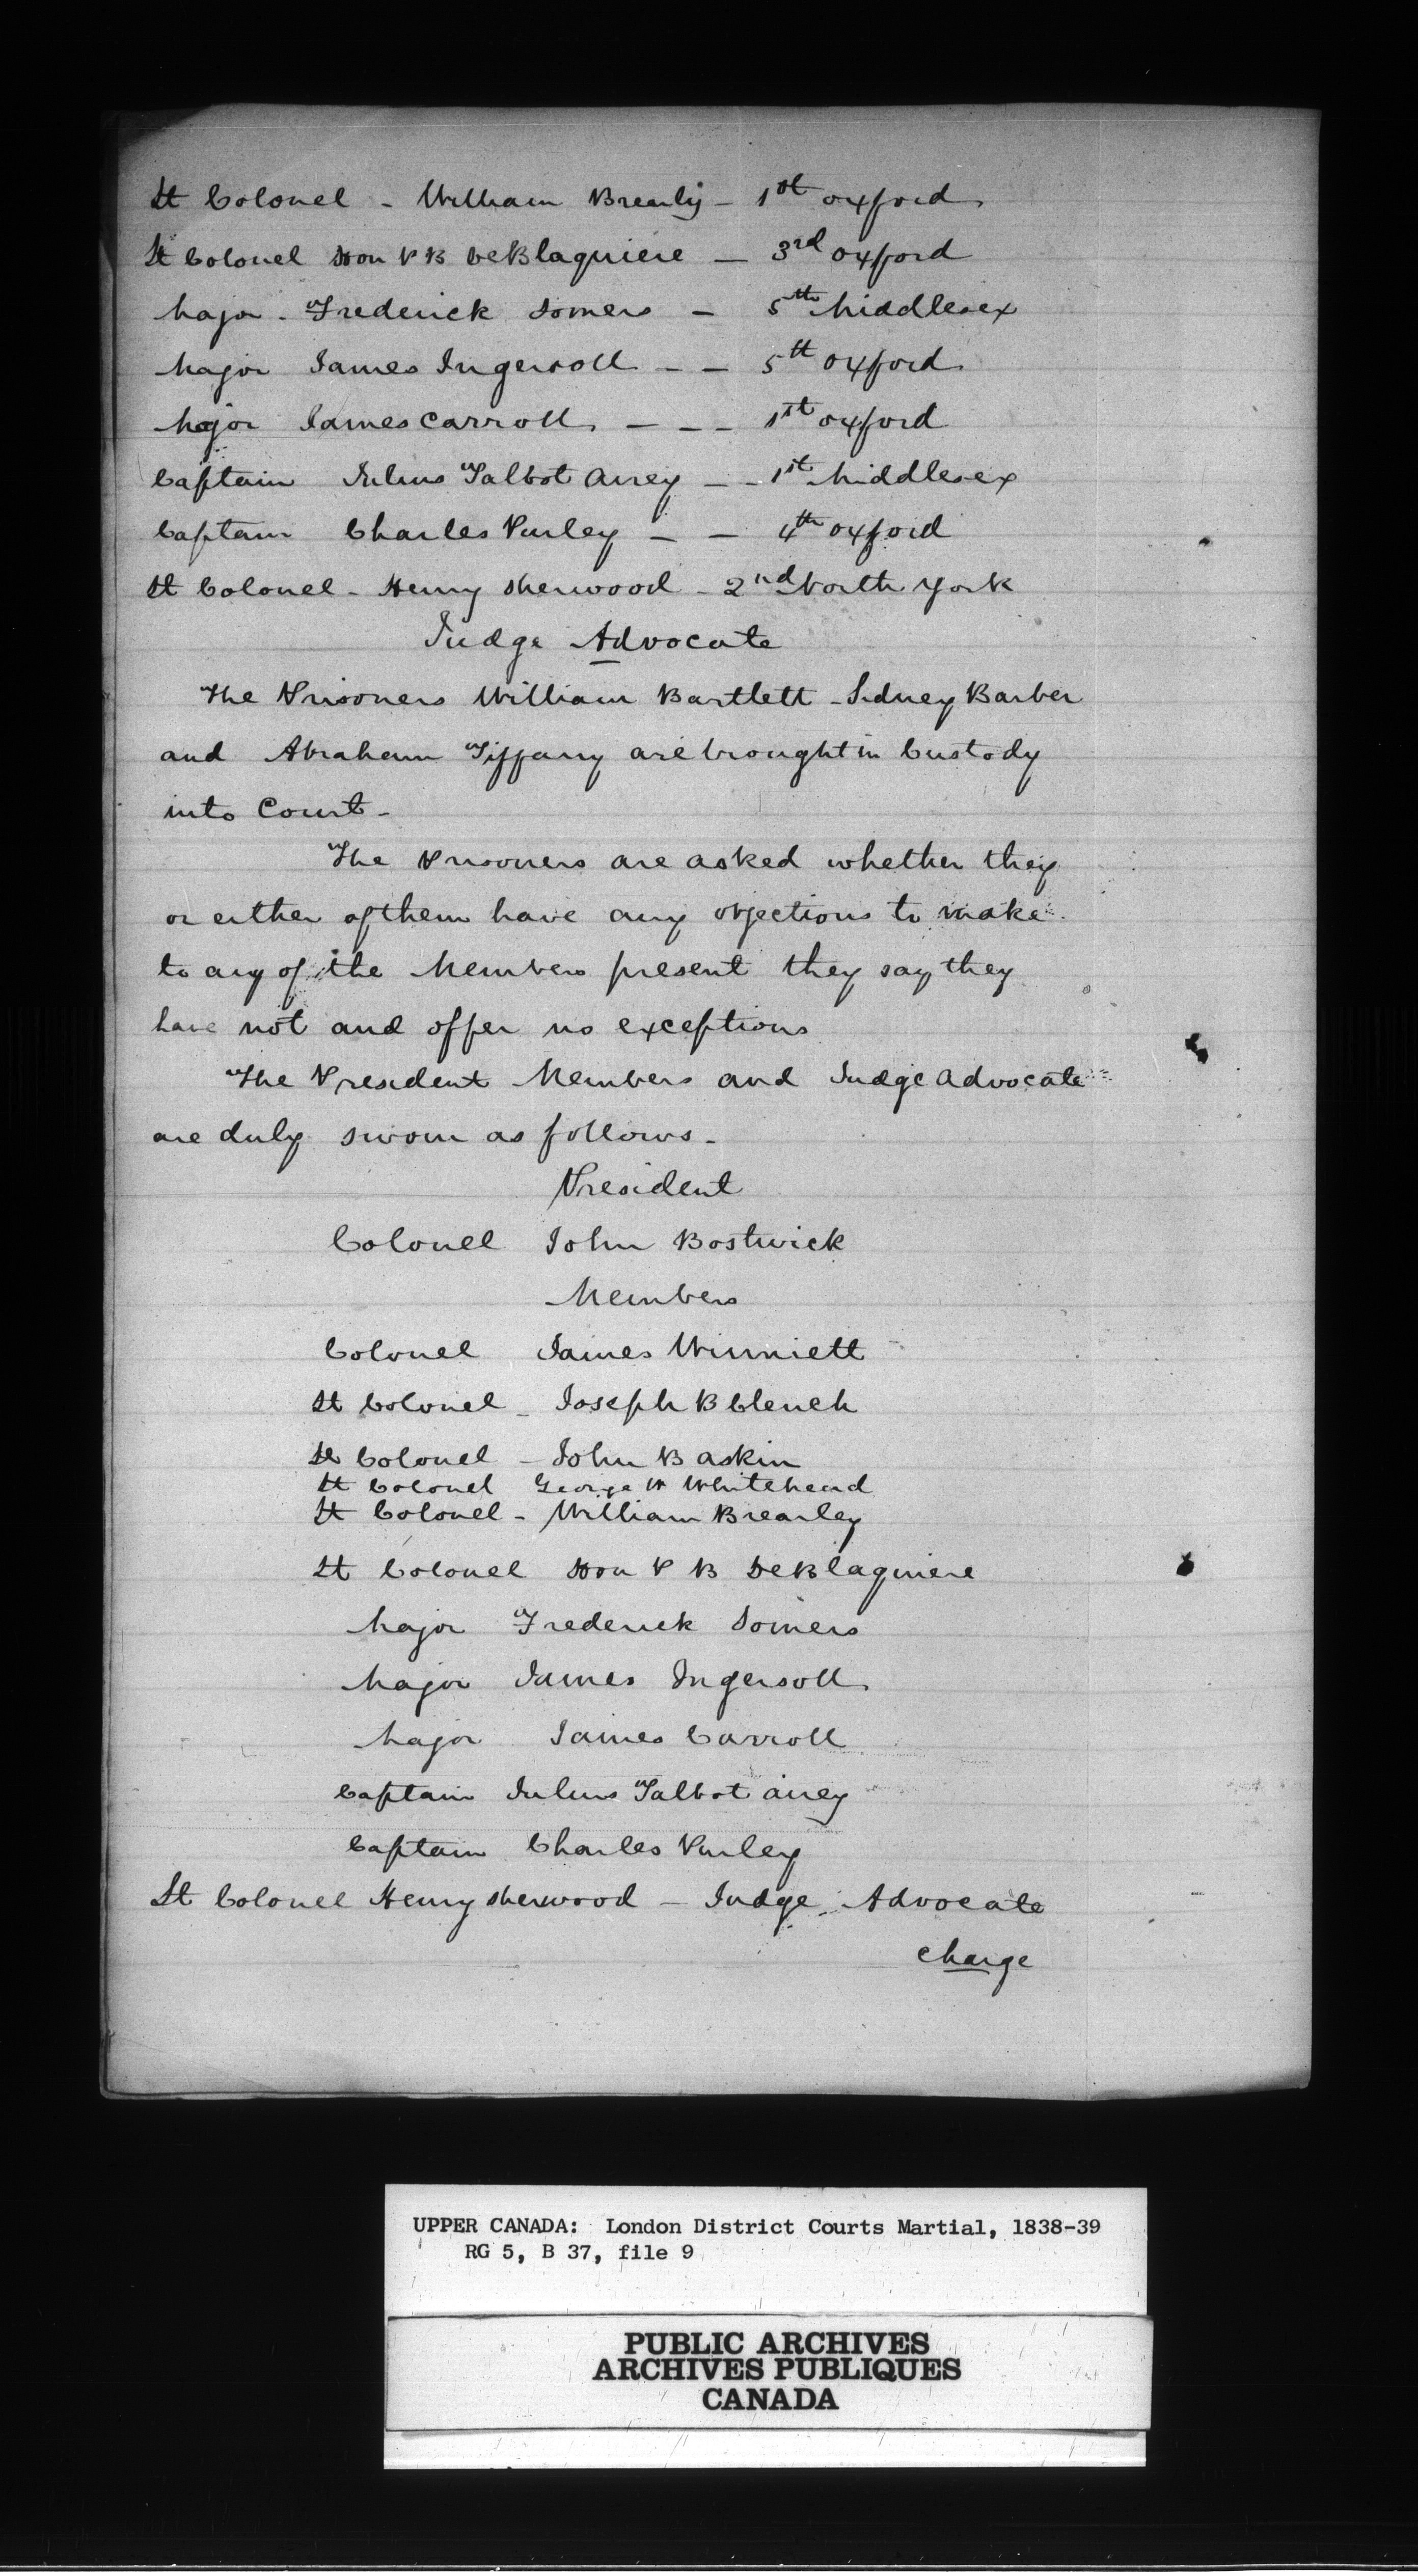 Lt Colonel - William Brearly - 1st Oxford
Lt Colonel Hon P B DeBlaquiere - 3rd Oxford
Major - Frederick Somers - 5th Middlesex
Major James Ingersoll - - 5th Oxford
Major James Carroll - - - 1st Oxford
Captain Julius Talbot Airey - - 1st Middlesex
Captain Charles Purley - - 4th Oxford
Lt Colonel - Henry Sherwood - 2nd North York
Judge Advocate
The Prisoners William Bartlett - Sidney Barber
and Abraham Tiffany are brought in Custody
into Court -
The Prisoners are asked whether they
or either of them have any objections to make
to any of the Members present they say they
have not and offer no exceptions
The President Members and Judge Advocate
are duly sworn as follows -
President
Colonel John Bostwick
Members
Colonel James Winniett
Lt Colonel - Joseph B Clench
Lt Colonel - John B Askin
Lt Colonel George W Whitehead
Lt Colonel - William Brearley
Lt Colonel Hon P B DeBlaquiere
Major Frederick Somers
Major James Ingersoll
Major James Carroll
Captain Julius Talbot Airey
Captain Charles Purley
Lt Colonel Henry Sherwood - Judge Advocate
Charge
UPPER CANADA: London District Courts Martial, 1838-39
RG 5, B 37, file 9
PUBLIC ARCHIVES
ARCHIVES PUBLIQUES
CANADA